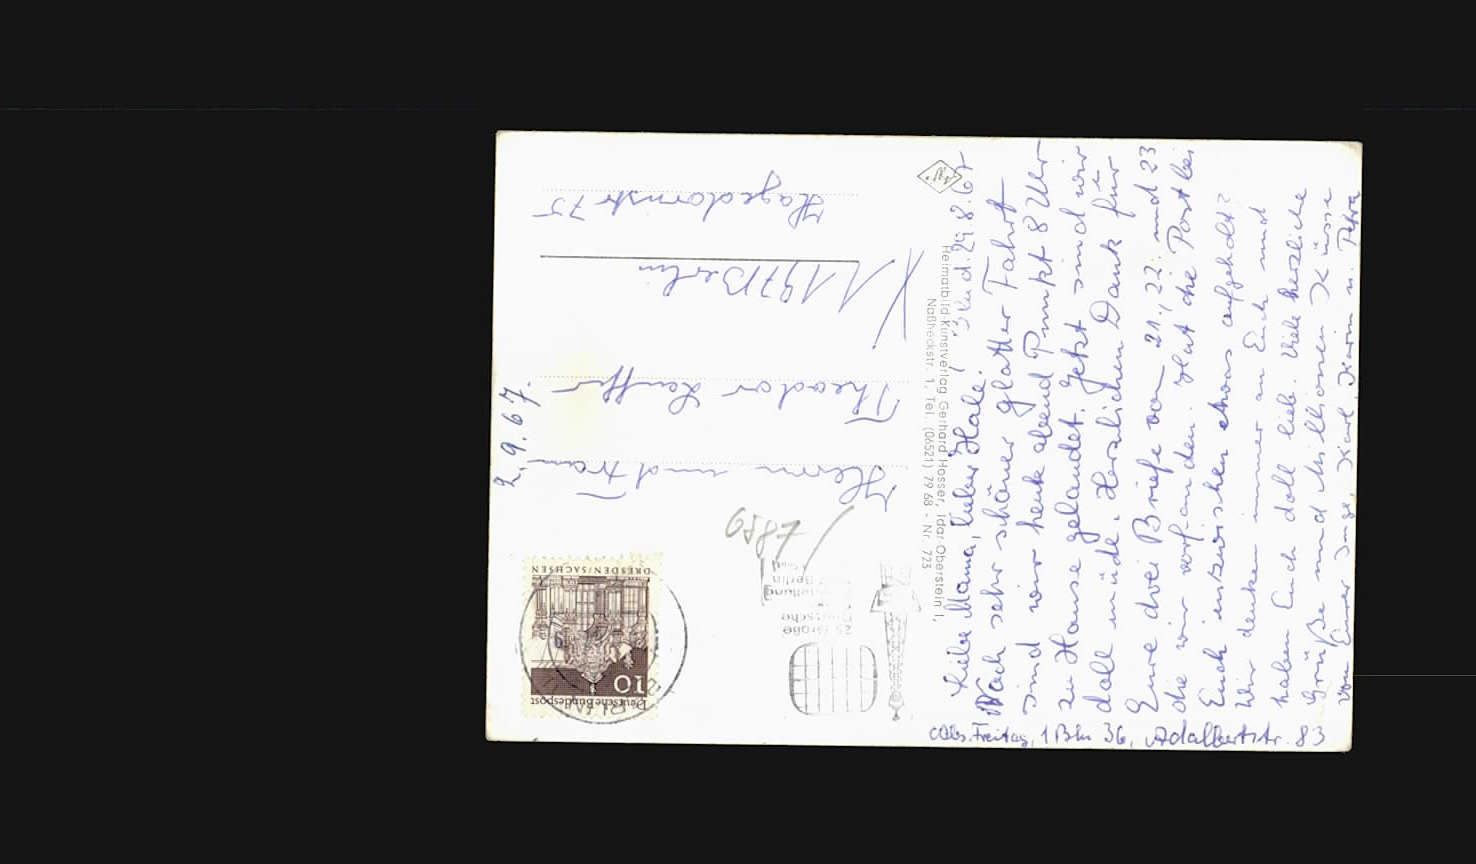 Abs. Freitag, 1 Bln 36, Adalbertstr. 83
Bln d. 29.8.67
Liebe Mama, lieber Hale!
Nach sehr schöner glatter Fahrt
sind wir heute abend Punkt 8 Uhr
zu Hause gelandet. Jetzt sind wir
doll müde. Herzlichen Dank für
Eure drei Briefe von 21., 22. und 23
die wir vorfanden. Hat die Post bei
Euch inzwischen etwas aufgeholt?
Wir denken immer an Euch und
haben Euch doll lieb. Viele herzliche
Grüße und Millionen Küsse
von Eurer Inge, Karl, Karin u. Petra
Heimatbild-Kunstverlag Gerhard Hosser, Idar-Oberstein 1,
Naßheckstr. 1, Tel. (06521) 79 68 - Nr. 723
Deutsche Bundespost
10
DRESDEN/SACHSEN
25. Große
Deutsche
Berlin
7889
Herrn und Frau
Theodor
1 197 Berlin
Hagedornstr 75
2.9.67.